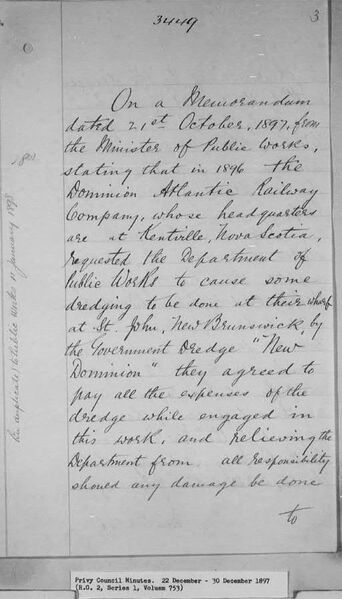 3449
3
On a Memorandum
dated 21st October, 1897, from
the Minister of Public Works,
stating that in 1896 the
Dominion Atlantic Railway
Company, whose headquarters
are at Kentville, Nova Scotia,
requested the Department of
Public Works to cause some
dredging to be done at their wharf
at St. John, New Brunswick, by
the Government Dredge "New
Dominion" they agreed to
pay all the expenses of the
dredge while engaged in
this work, and relieving the
Department from all responsibility
should any damage be done
to
Public Works 11 January 1898
Privy Council Minutes. 22 December - 30 December 1897
(R.G. 2, Series 1, Volume 753)